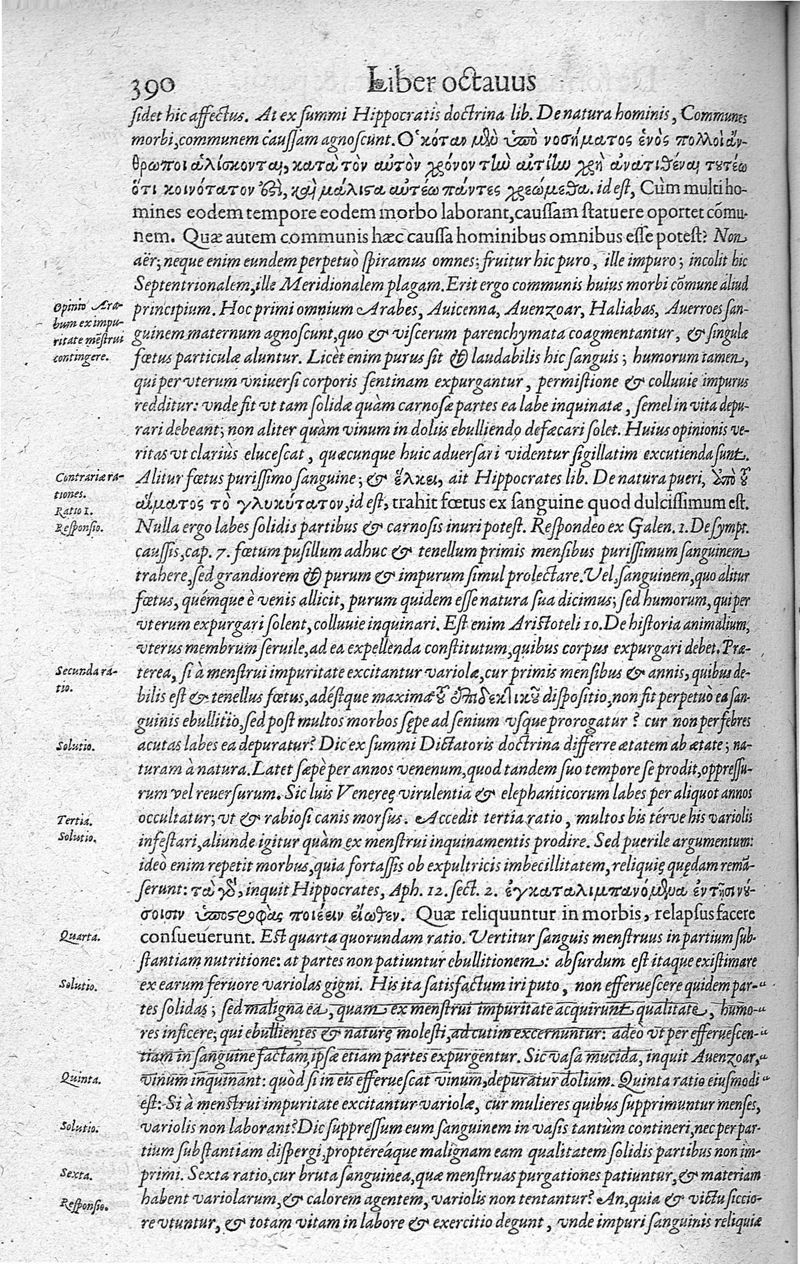 390
Liber octauus
sidet hic affectus. At ex summi Hippocratis doctrina lib. De natura hominis, Communes
morbi, communem caussam agnoscunt. Ὁκόταν μὲν ὑπὸ νοσήματος ἑνὸς πολλοὶ ἄν-
θρωποι ἁλίσκονται, κατὰ τὸν αὐτὸν χρόνον τὴν αἰτίην χρὴ ἀνατιθέναι τουτέῳ
ὅτι κοινότατον ἐστὶ, καὶ μάλιστα αὐτέῳ πάντες χρεώμεθα. id est, Cùm multi ho-
mines eodem tempore eodem morbo laborant, caussam statuere oportet cōmu-
nem. Quæ autem communis hæc caussa hominibus omnibus esse potest? Non
aër; neque enim eundem perpetuò spiramus omnes: fruitur hic puro, ille impuro; incolit hic
Septentrionalem, ille Meridionalem plagam. Erit ergo communis huius morbi cōmune aliud
Opinio Ara-
bum ex impu-
ritate mēstrui
contingere.
principium. Hoc primi omnium Arabes, Auicenna, Auenzoar, Haliabas, Auerroes san-
guinem maternum agnoscunt, quo & viscerum parenchymata coagmentantur, & singulæ
fœtus particulæ aluntur. Licèt enim purus sit & laudabilis hic sanguis; humorum tamen,
qui per vterum vniuersi corporis sentinam expurgantur, permistione & colluuie impurus
redditur: vnde fit vt tam solidæ quàm carnosæ partes ea labe inquinatæ, semel in vita depu-
rari debeant; non aliter quàm vinum in doliis ebulliendo defæcari solet. Huius opinionis ve-
ritas vt clariùs elucescat, quæcunque huic aduersari videntur sigillatim excutienda sunt.
Contrariæ ra-
tiones.
Ratio 1.
Responsio.
Alitur fœtus purissimo sanguine; & ἕλκει, ait Hippocrates lib. De natura pueri, ἀπὸ τοῦ
αἵματος τὸ γλυκύτατον, id est, trahit fœtus ex sanguine quod dulcissimum est.
Nulla ergo labes solidis partibus & carnosis inuri potest. Respondeo ex Galen. 1. De sympt.
caussis, cap. 7. fœtum pusillum adhuc & tenellum primis mensibus purissimum sanguinem
trahere, sed grandiorem & purum & impurum simul prolectare. Vel, sanguinem, quo alitur
fœtus, quémque è venis allicit, purum quidem esse natura sua dicimus; sed humorum, qui per
vterum expurgari solent, colluuie inquinari. Est enim Aristoteli 10. De historia animalium,
vterus membrum seruile, ad ea expellenda constitutum, quibus corpus expurgari debet. Præ-
Secunda ra-
tio.
terea, si à menstrui impuritate excitantur variolæ, cur primis mensibus & annis, quibus de-
bilis est & tenellus fœtus, adéstque maxima τοῦ ἐπιδεκτικοῦ dispositio, non fit perpetuò ea san-
guinis ebullitio, sed post multos morbos sępe ad senium vsque prorogatur? cur non per febres
Solutio.
acutas labes ea depuratur? Dic ex summi Dictatoris doctrina differre ætatem ab ætate; na-
turam à natura. Latet sæpè per annos venenum, quod tandem suo tempore se prodit, oppressu-
rum vel reuersurum. Sic luis Venereę virulentia & elephanticorum labes per aliquot annos
Tertia.
Solutio.
occultatur; vt & rabiosi canis morsus. Accedit tertia ratio, multos bis térve his variolis
infestari, aliunde igitur quàm ex menstrui inquinamentis prodire. Sed puerile argumentum:
ideò enim repetit morbus, quia fortassis ob expultricis imbecillitatem, reliquię quędam remā-
serunt: τὰ γὰρ, inquit Hippocrates, Aph. 12. sect. 2. ἐγκαταλιμπανόμενα ἐν τῇσι νύ-
σοισιν ὑποστροφὰς ποιέειν εἴωθεν. Quæ reliquuntur in morbis, relapsus facere
Quarta.
consueuerunt. Est quarta quorundam ratio. Vertitur sanguis menstruus in partium sub-
stantiam nutritione: at partes non patiuntur ebullitionem: absurdum est itaque existimare
Solutio.
ex earum feruore variolas gigni. His ita satisfactum iri puto, non efferuescere quidem par-"
tes solidas; sed maligna ea, quam ex menstrui impuritate acquirunt qualitate, humo-"
res inficere; qui ebullientes & naturę molesti, ad cutim excernuntur: adeò vt per efferuescen-"
tiam in sanguine factam, ipsæ etiam partes expurgentur. Sic vasa mucida, inquit Auenzoar,"
Quinta.
vinum inquinant: quòd si in eis efferuescat vinum, depuratur dolium. Quinta ratio eiusmodi"
est: Si à menstrui impuritate excitantur variolæ, cur mulieres quibus supprimuntur menses,
Solutio.
variolis non laborant? Dic suppressum eum sanguinem in vasis tantùm contineri, nec per par-
tium substantiam dispergi, proptereáque malignam eam qualitatem solidis partibus non im-
Sexta.
primi. Sexta ratio, cur bruta sanguinea, quæ menstruas purgationes patiuntur, & materiam
Responsio.
habent variolarum, & calorem agentem, variolis non tentantur? An, quia & victu siccio-
re vtuntur, & totam vitam in labore & exercitio degunt, vnde impuri sanguinis reliquiæ